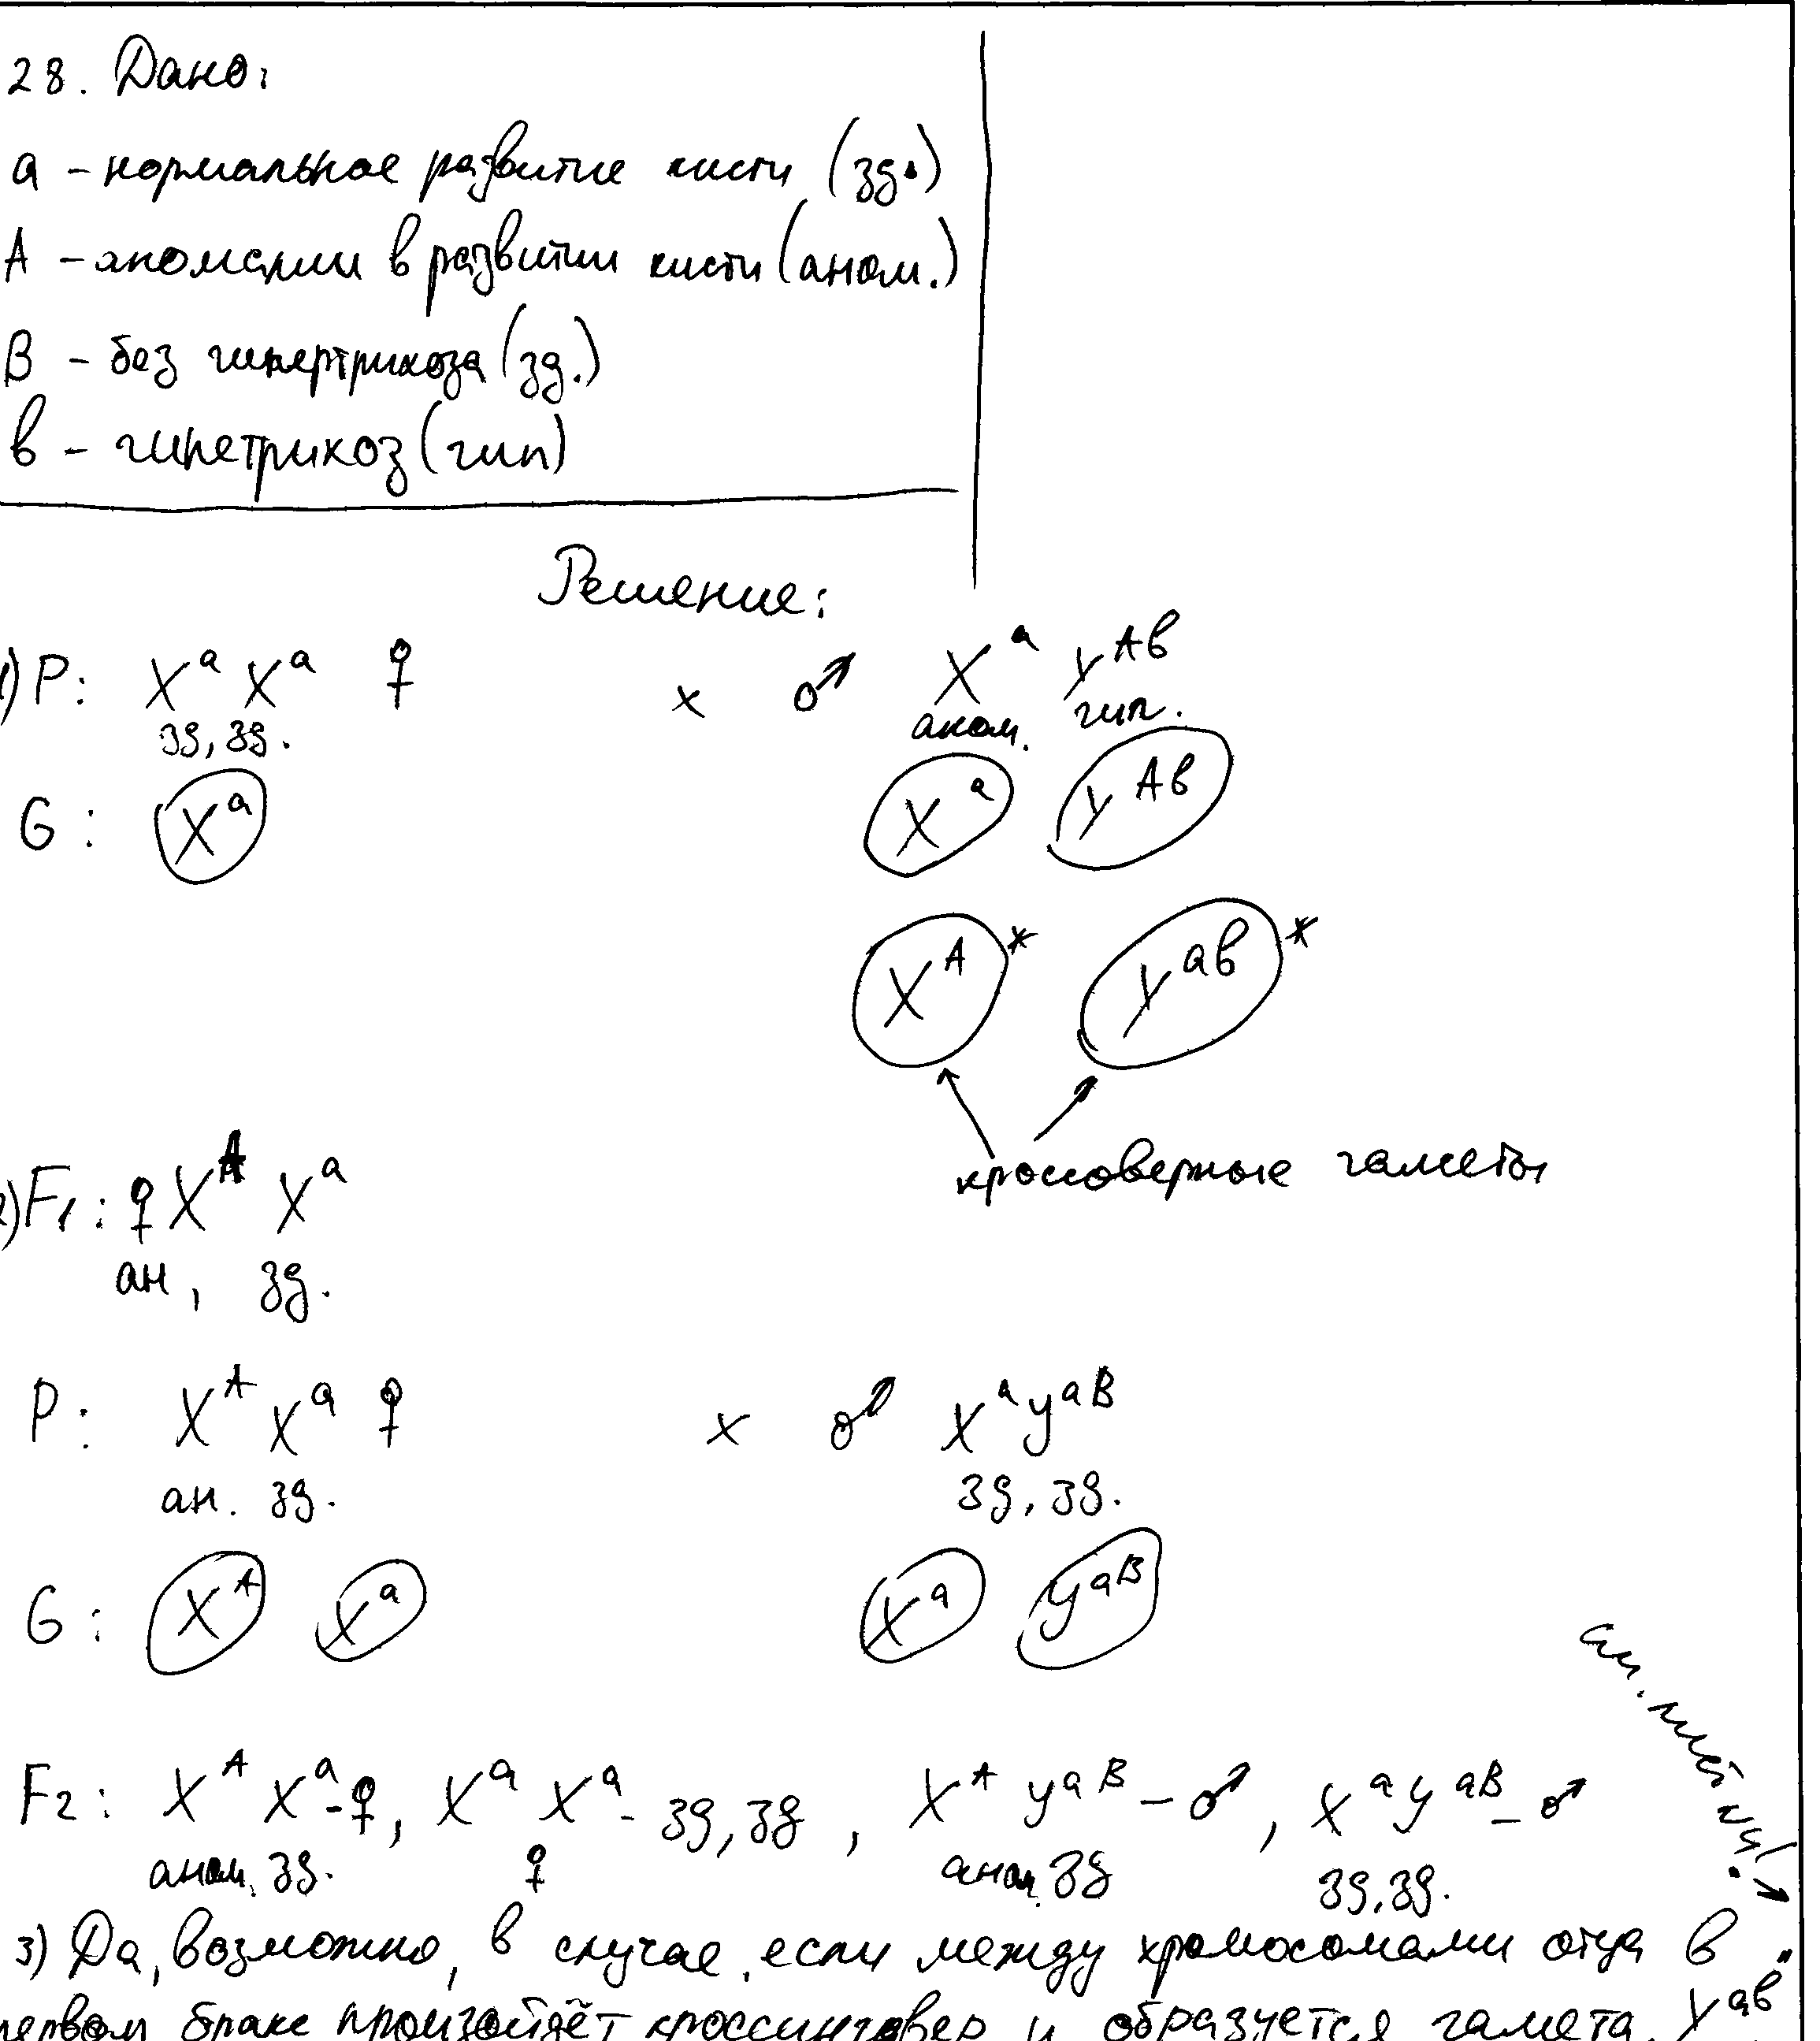 28. Дано:
а - нормальное развитие кисти (зд.)
А - аномалии в развитии кисти (аном.)
В - без гипертрихоза (зд.)
в - гипетрихоз (гип)
Решение:
1) P: Xᵃ Xᵃ ♀ x ♂ Xᵃ Yᴬᵇ
зд, зд. аном. гип.
G: Xᵃ Xᵃ Yᴬᵇ
Xᴬ* Yᵃᵇ*
кроссоверные гаметы
2) F₁: ♀ Xᴬ Xᵃ
ан, зд.
P: Xᴬ Xᵃ ♀ x ♂ Xᵃ Yᵃᴮ
ан. зд. зд, зд.
G: Xᴬ Xᵃ Xᵃ Yᵃᴮ
см. лист №1
F₂: Xᴬ Xᵃ - ♀, Xᵃ Xᵃ - зд, зд, Xᴬ Yᵃᴮ - ♂, Xᵃ Yᵃᴮ - ♂
аном, зд. ♀ аном. зд зд, зд.
3) Да, возможно, в случае, если между хромосомами отца в
первом браке произойдёт кроссинговер и образуется гамета Yᵃᵇ